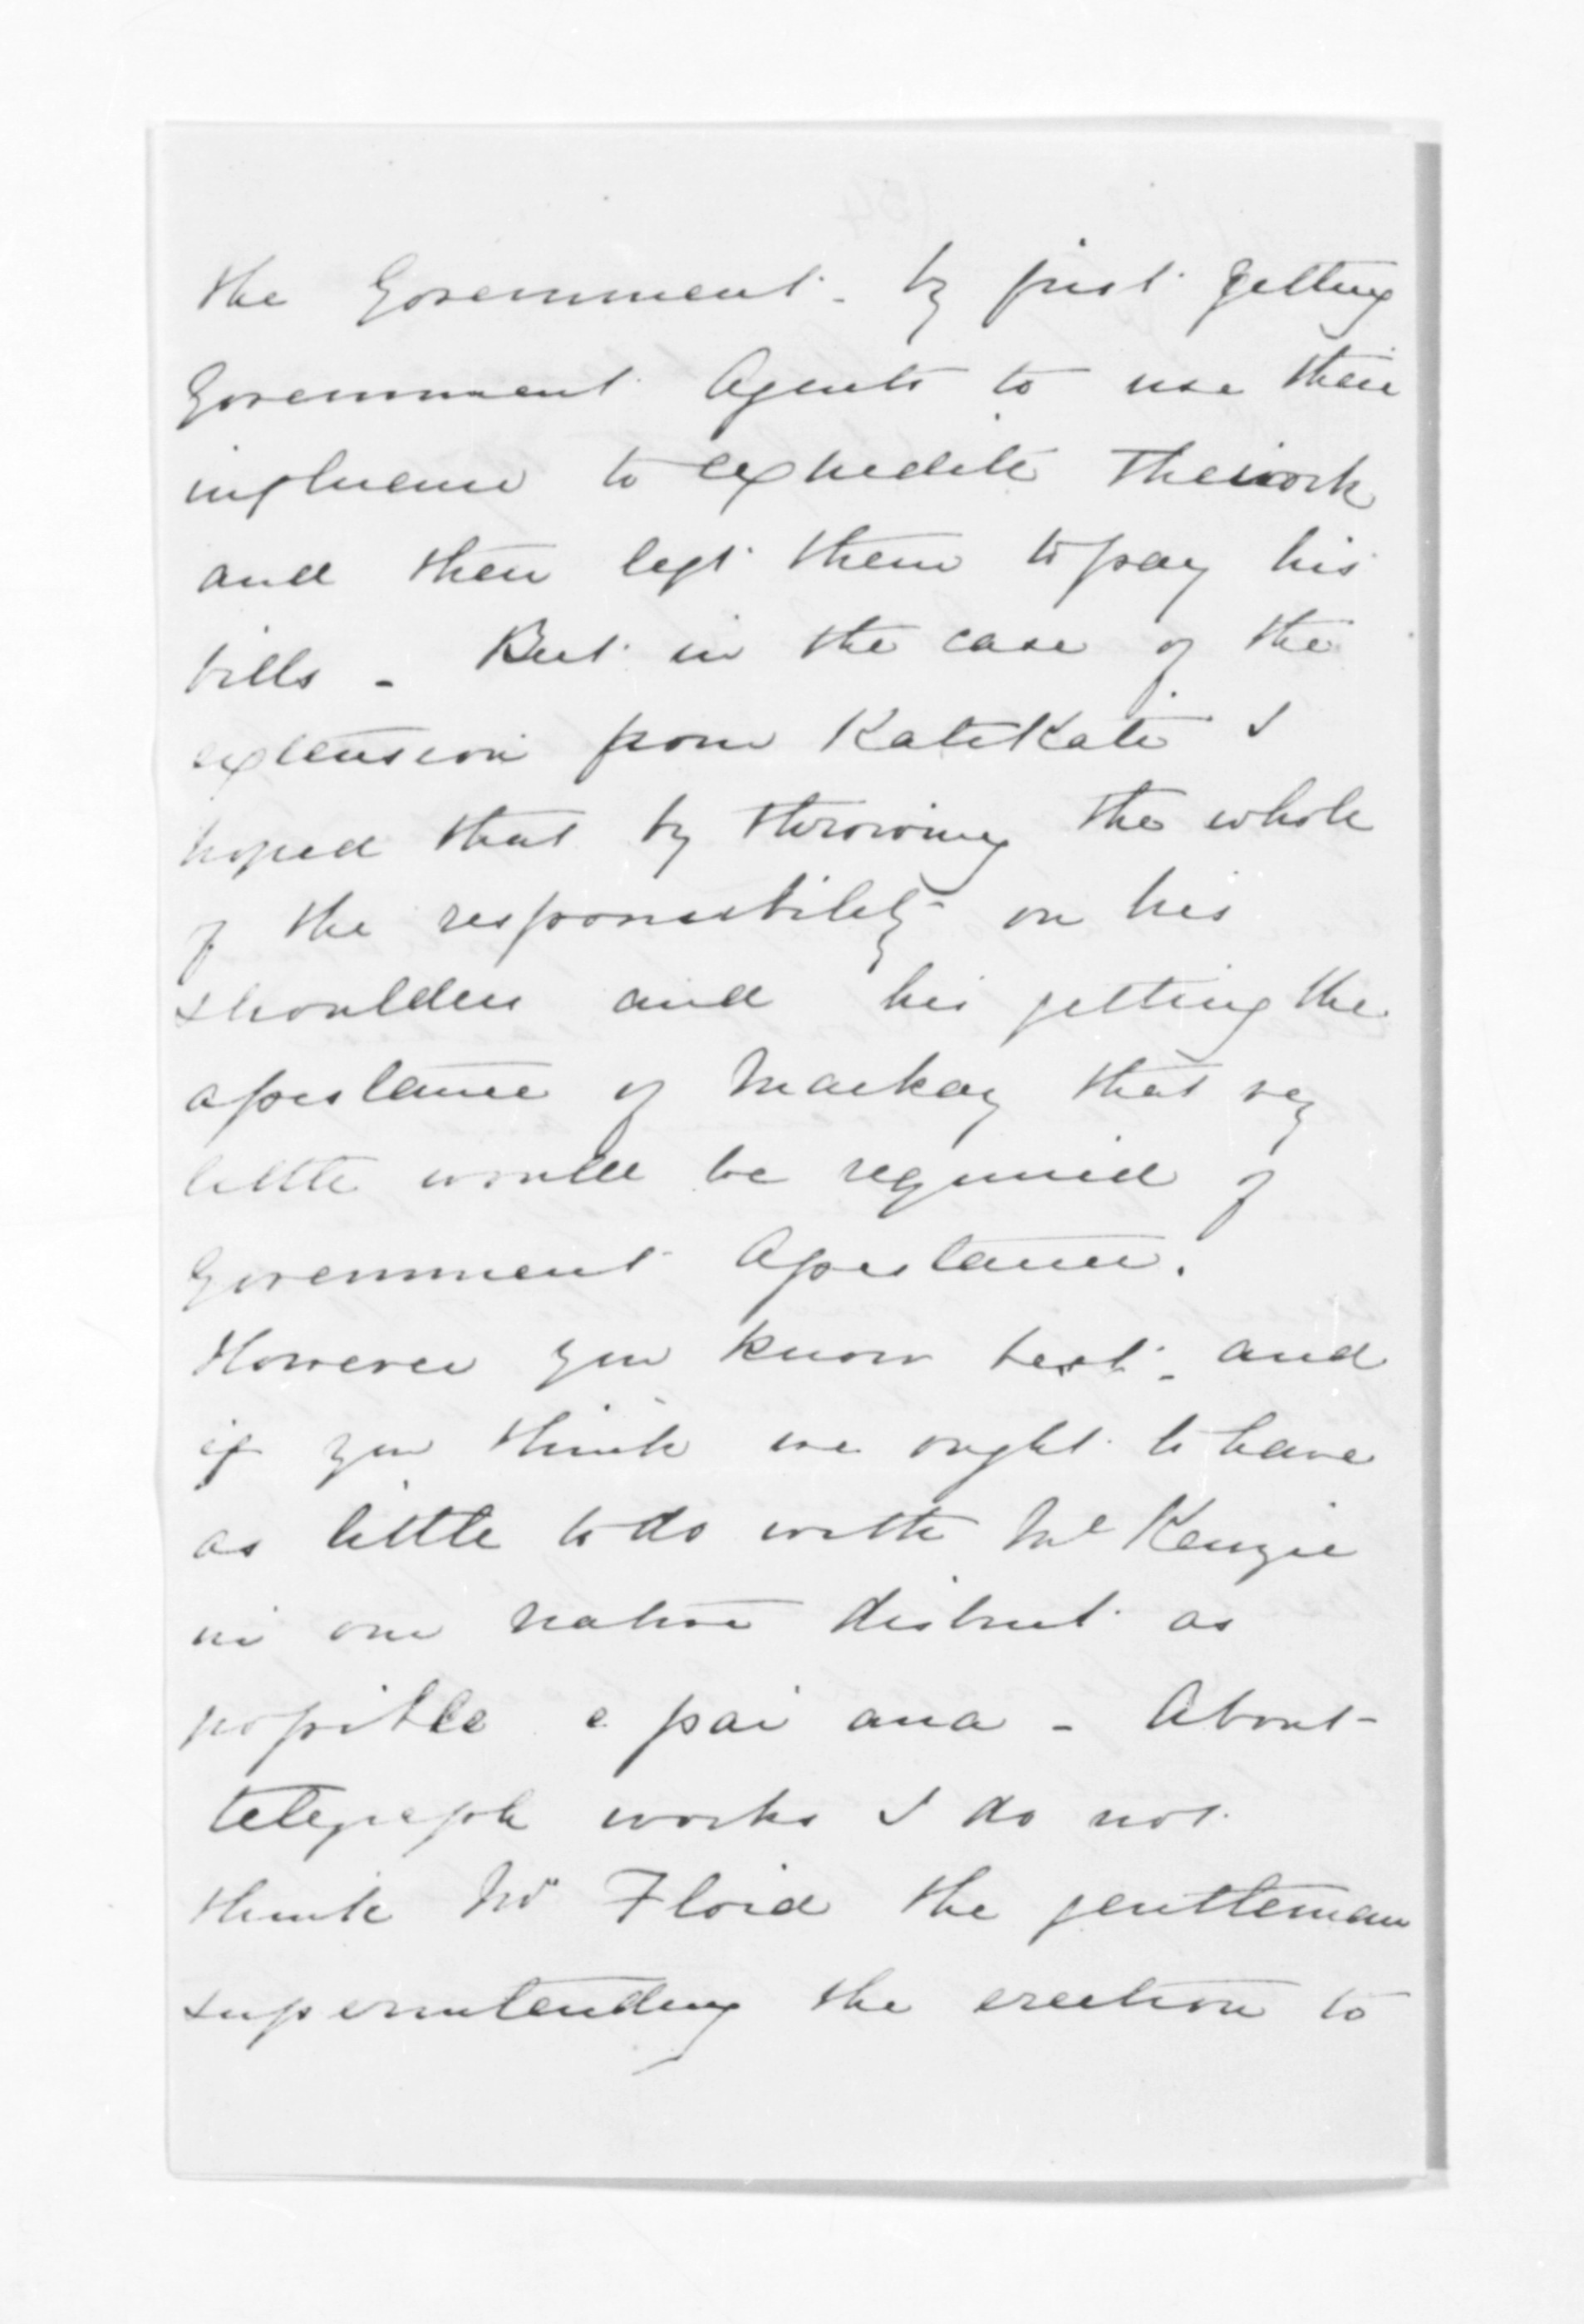 the Government - by first getting
Government Agents to use their
influence to expedite the work
and then left them to pay his
bills - But in the case of the
extension from KatiKati I
hoped that by throwing the whole
of the responsibility on his
shoulders and his getting the
assistance of Mackay that very
little would be required of
Government Assistance.
However you know best - and
if you think we ought to have
as little to do with McKenzie
in our native district as
possible e pai ana - About
telegraph works I do not
think Mr Floid the gentleman
superintending the erection to